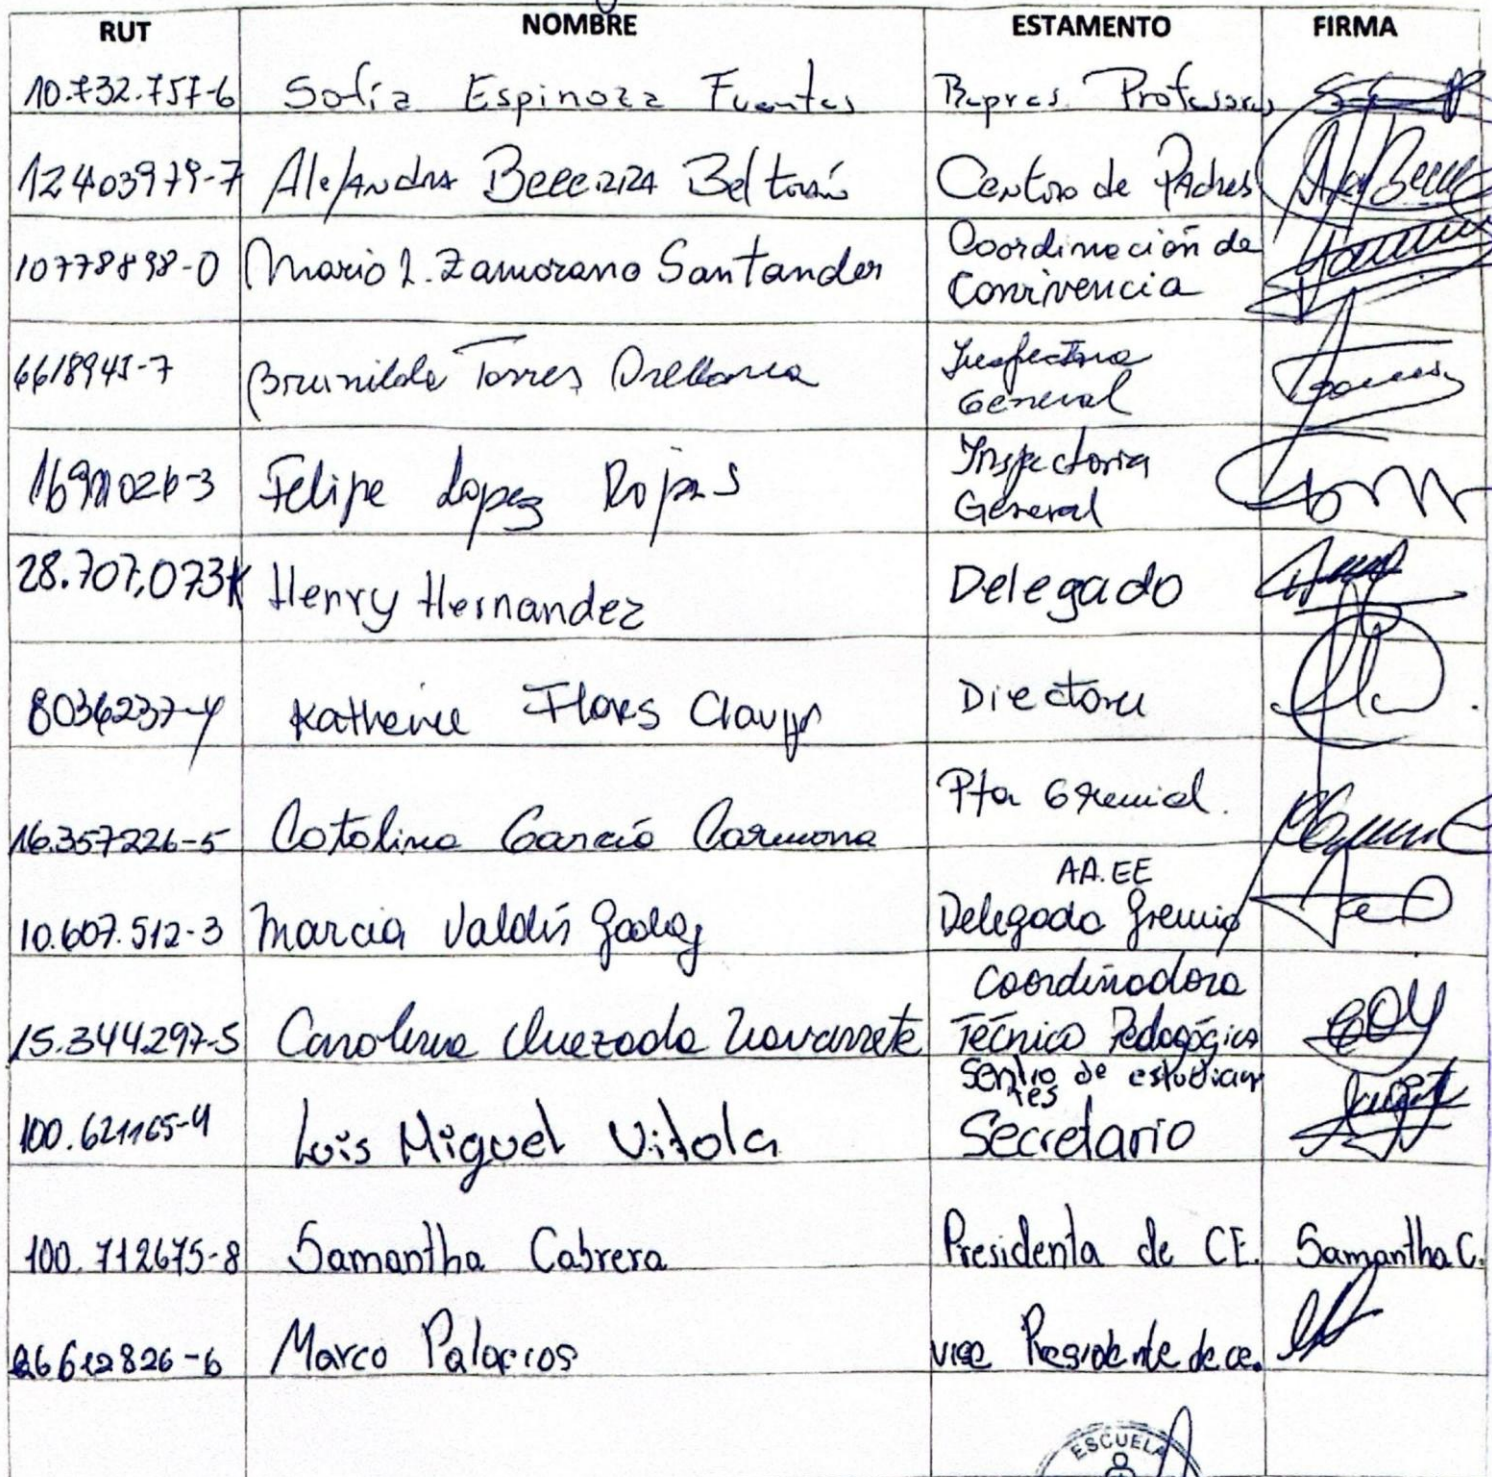 RUT NOMBRE ESTAMENTO FIRMA
10.732.757-6 Sofía Espinoza Fuentes Repres. Profesores
12403979-7 Alejandra Becerra Beltrán Centro de Padres
10778898-0 Mario L. Zamorano Santander Coordinación de
Convivencia
6618945-7 Brunilda Torres Orellana Inspectora
General
Felipe Lopez Rojas Inspectoria
General
28.707.073K Henry Hernandez Delegado
8036237-4 Katherine Flores Directora
16.357226-5 Catalina García Carmona Pta Gremial.
AA.EE
10.607.512-3 Marcia Valdés Godoy Delegada Gremio
Coordinadora
15.344.297-5 Carolina Quezada Navarrete Técnico Pedagógica
Sentro de estudian
tes
100.621165-4 Luis Miguel Vitola Secretario
100.712675-8 Samantha Cabrera Presidenta de CE. Samantha C.
26612826-6 Marco Palacios vice Presidente de ce.
ESCUELA